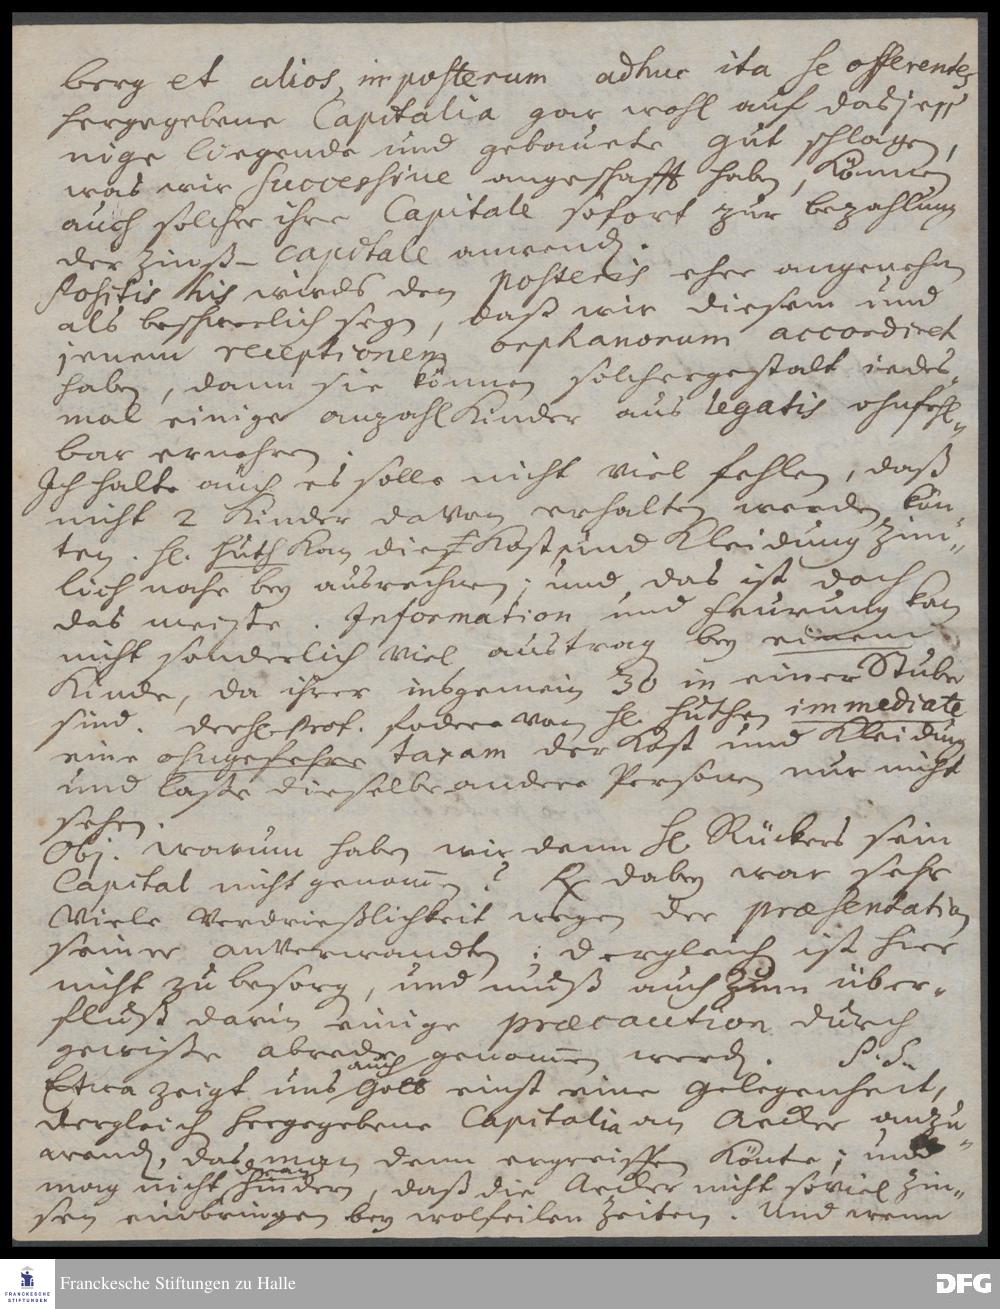 berg et alios, in posterum adhuc ita se offerentes
hergegebene Capitalia gar wohl auf dasjeni-
nige liegende und gebauete gut schlagen,
was wir successive angeschafft haben, können
auch solche ihre Capitale sofort zur bezahlung
der Zinß-Capitale anwenden.
Positis his wirds den posteris eher angenehm
als beschwerlich seyn, daß wir diesem und
jenem receptionem orphanorum accordiret
haben, dann sie können solchergestalt iedes-
mal einige anzahl Kinder aus legatis ohnfehl-
bar ernehren.
Ich halte auch es solle nicht viel fehlen, daß
nicht 2 Kinder davon erhalten werden kön-
ten. H. Huth kan die Kost und Kleidung zim-
lich nahe bey ausrechnen; und das ist doch
das meiste. Information und Feurung kan
nicht sonderlich viel austrag bey einem
Kinde, da ihrer insgemein 30 in einer Stube
sind. der H. Prof. fodere von H. Huthen immediate
eine ohngefehre taxam der Kost und Kleidung
und laße dieselbe andere Personen nur nicht
sehen.
Obj. warum haben wir denn H. Rückers sein
Capital nicht genommen? Rx dabey war sehr
viele Verdrießlichkeit wegen der præsentation
seiner anverwandten; dergleich ist hier
nicht zu besorgen, und muß auch zum über-
fluß darin einige præcaution durch
gewiße abrede genommen werden. S. S.
Etwa zeigt uns auch Gott einst eine gelegenheit,
dergleich hergegebene Capitalia an Aecker anzu-
wenden, das man denn ergreiffen könte; und
mag nicht daran hindern, daß die Aecker nicht soviel Zin-
sen einbringen bey wolfeilen Zeiten. Und wenn
FRANCKESCHE STIFTUNGEN
Franckesche Stiftungen zu Halle
DFG